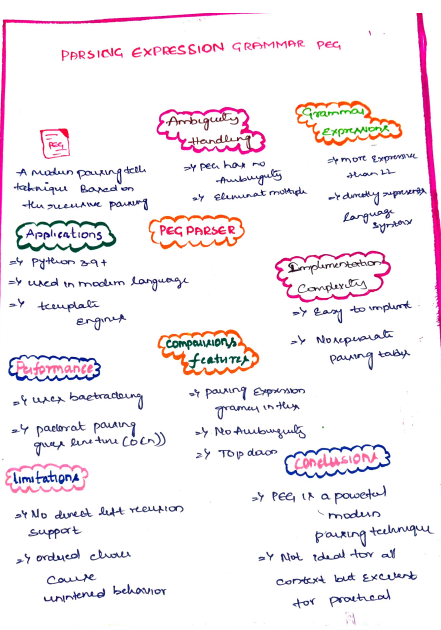 PARSING EXPRESSION GRAMMAR PEG
PEG
A modern parsing tech
technique Based on
the recursive parsing
Ambiguity
Handling
=> PEG has no
Ambuiguity
=> Eliminat multiple
Grammar
Expressions
=> more Expressive
than LL
=> directly represents
language
syntax
Applications
=> Python 3.9+
=> used in modern language
=> template
Engines
PEG PARSER
Implimentation
Complexity
=> Easy to implent
=> No seperate
parsing table
Performance
=> uses backtracking
=> packrat parsing
gives line time (O(n))
Comparisions
features
=> parsing Expression
=> No Ambuiguity
=> Top down
limitations
=> No direct left recursion
support
=> ordered choice
cause
unintened behavior
Conclusions
=> PEG is a powerful
modern
parsing technique
=> Not ideal for all
context but Excelent
for practical